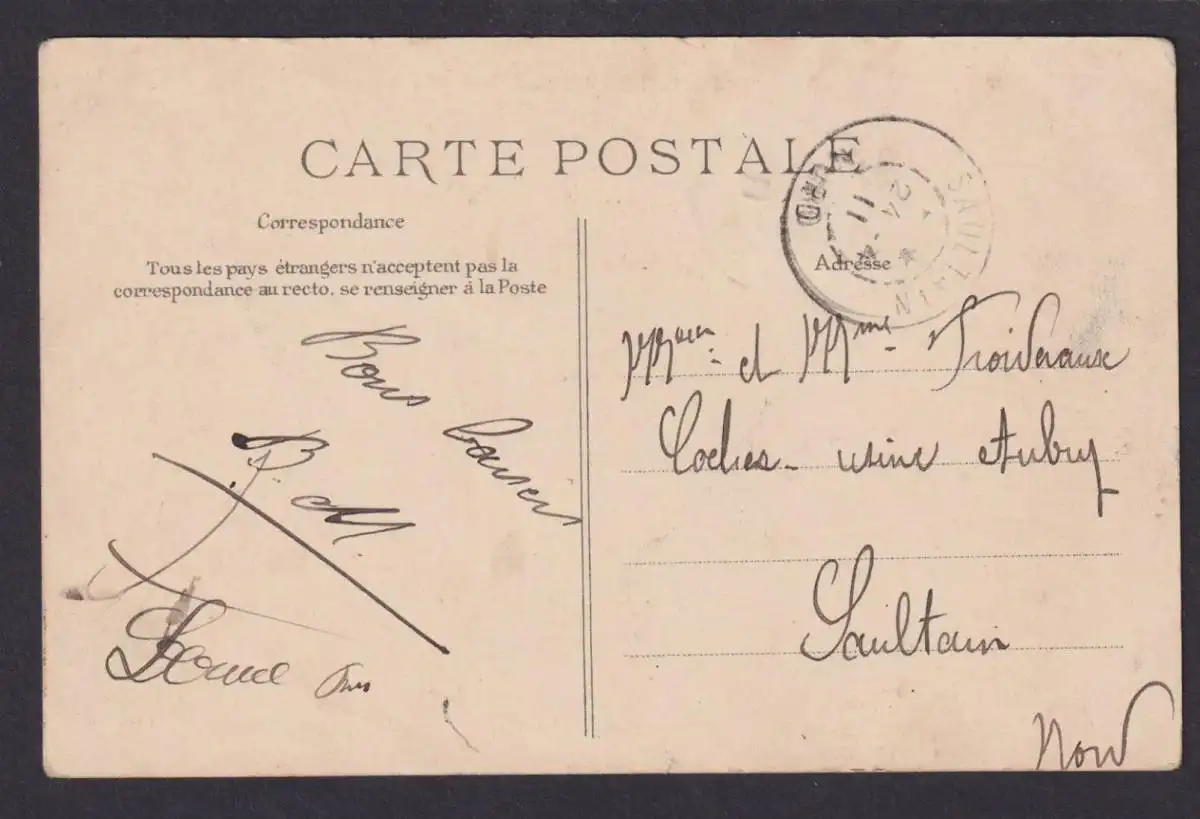 CARTE POSTALE
Correspondance
Tous les pays étrangers n'acceptent pas la
correspondance au recto, se renseigner à la Poste
Bons baisers
B. M.
Adresse
SAULTAIN
NORD
24
11
et Mme Froideraux
Coches - usine Aubry
Saultain
Nord